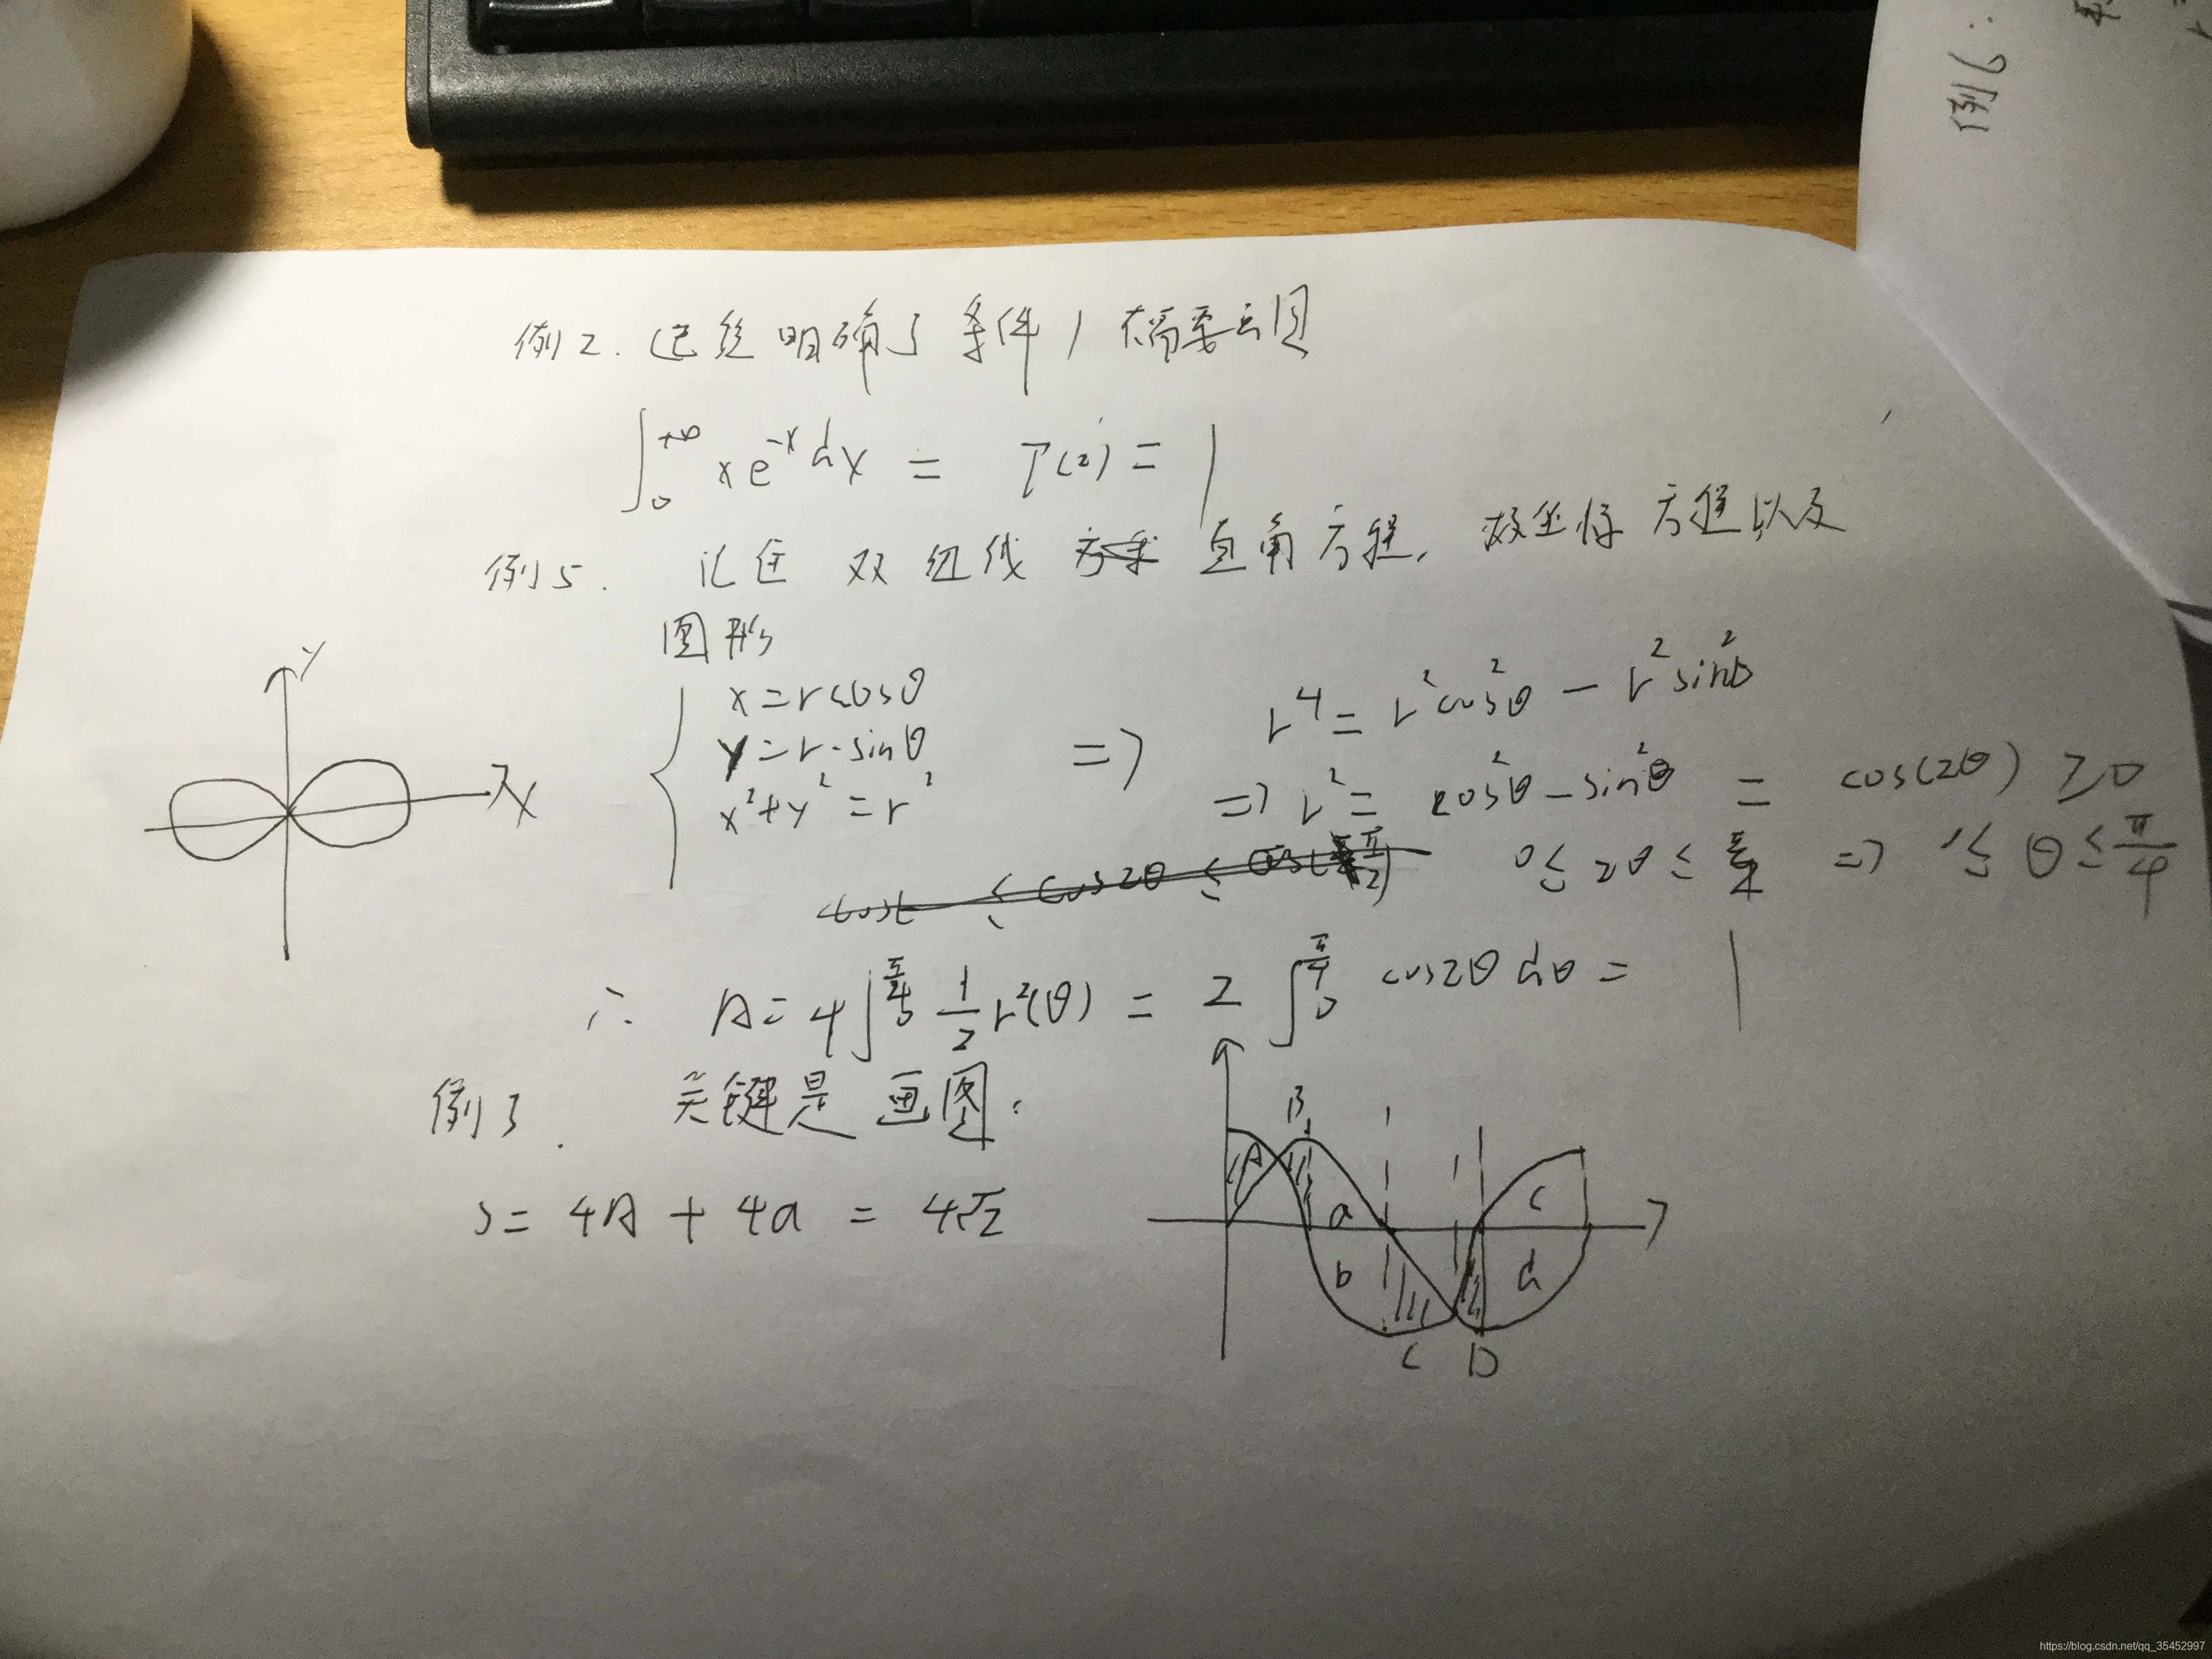 例6:
例2. 已经明确了条件，不需要画图
∫₀^{+∞} xe^{-x}dx = Γ(2) = 1
例5. 记住双纽线 直角方程，极坐标方程以及
图形
y
x
x=rcosθ
y=r·sinθ
x²+y²=r²
=> r⁴= r²cos²θ - r²sin²θ
=> r²= cos²θ-sin²θ = cos(2θ) ≥0
0≤2θ≤π/2 => 0≤θ≤π/4
∴ A=4∫₀^{π/4} 1/2 r²(θ) = 2∫₀^{π/4} cos2θdθ = 1
例3. 关键是画图.
S= 4A + 4a = 4√2
A
B
a
b
c
d
C
D
https://blog.csdn.net/qq_35452997